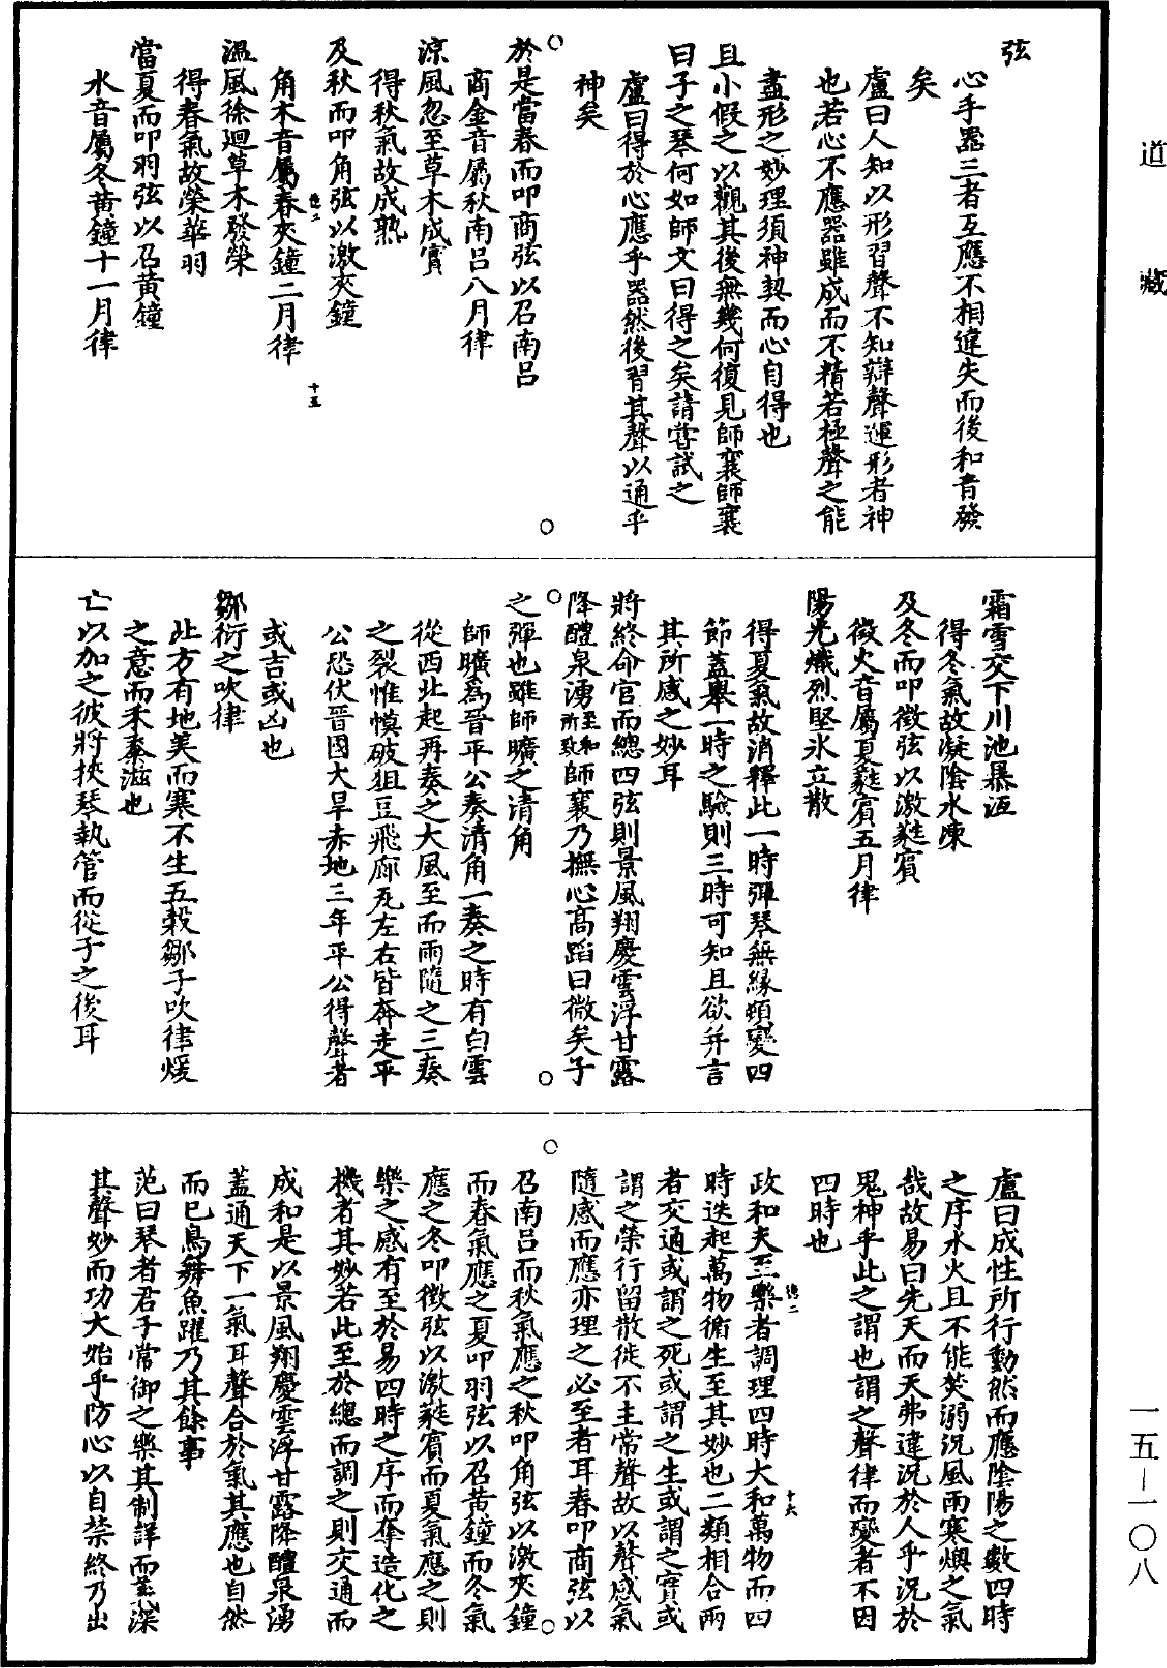 道藏
弦
心手器三者互應不相違失而後和音發
矣
盧曰人知以形習聲不知辯聲運形者神
也若心不應器雖成而不精若極聲之能
盡形之妙理須神契而心自得也
且小假之以觀其後無幾何復見師襄師襄
曰子之琴何如師文曰得之矣請嘗試之
盧曰得於心應乎器然後習其聲以通乎
神矣
於是當春而叩商弦以召南呂
商金音屬秋南呂八月律
涼風忽至草木成實
得秋氣故成熟
及秋而叩角弦以激夾鐘
角木音屬春夾鐘二月律
十五
溫風徐迴草木發榮
得春氣故榮華羽
當夏而叩羽弦以召黃鐘
水音屬冬黃鐘十一月律
霜雪交下川池暴沍
得冬氣故凝陰水凍
及冬而叩徵弦以激蕤賓
徵火音屬夏蕤賓五月律
陽光熾烈堅冰立散
得夏氣故消釋此一時彈琴無緣頓變四
節蓋舉一時之驗則三時可知且欲并言
其所感之妙耳
將終命宮而總四弦則景風翔慶雲浮甘露
降醴泉湧至和所致師襄乃撫心高蹈曰微矣子
之彈也雖師曠之清角
師曠為晉平公奏清角一奏之時有白雲
從西北起再奏之大風至而雨隨之三奏
之裂帷幙破俎豆飛廊瓦左右皆奔走平
公恐伏晉國大旱赤地三年平公得聲者
或吉或凶也
鄒衍之吹律
北方有地美而寒不生五穀鄒子吹律煖
之意而禾黍滋也
亡以加之彼將挾琴執管而從子之後耳
盧曰成性所行動然而應陰陽之數四時
之序水火且不能焚溺況風雨寒燠之氣
哉故易曰先天而天弗違況於人乎況於
鬼神乎此之謂也謂之聲律而變者不因
四時也
十六
政和夫至樂者調理四時大和萬物而四
時迭起萬物循生至其妙也二類相合兩
者交通或謂之死或謂之生或謂之實或
謂之榮行留散徙不主常聲故以聲感氣
隨感而應亦理之必至者耳春叩商弦以
召南呂而秋氣應之秋叩角弦以激夾鐘
而春氣應之夏叩羽弦以召黃鐘而冬氣
應之冬叩徵弦以激蕤賓而夏氣應之則
樂之感有至於易四時之序而奪造化之
機者其妙若此至於總而調之則交通而
成和是以景風翔慶雲浮甘露降醴泉湧
蓋通天下一氣耳聲合於氣其應也自然
而已鳥舞魚躍乃其餘事
范曰琴者君子常御之樂其制詳而義深
其聲妙而功大始乎防心以自禁終乃出
一五－一〇八